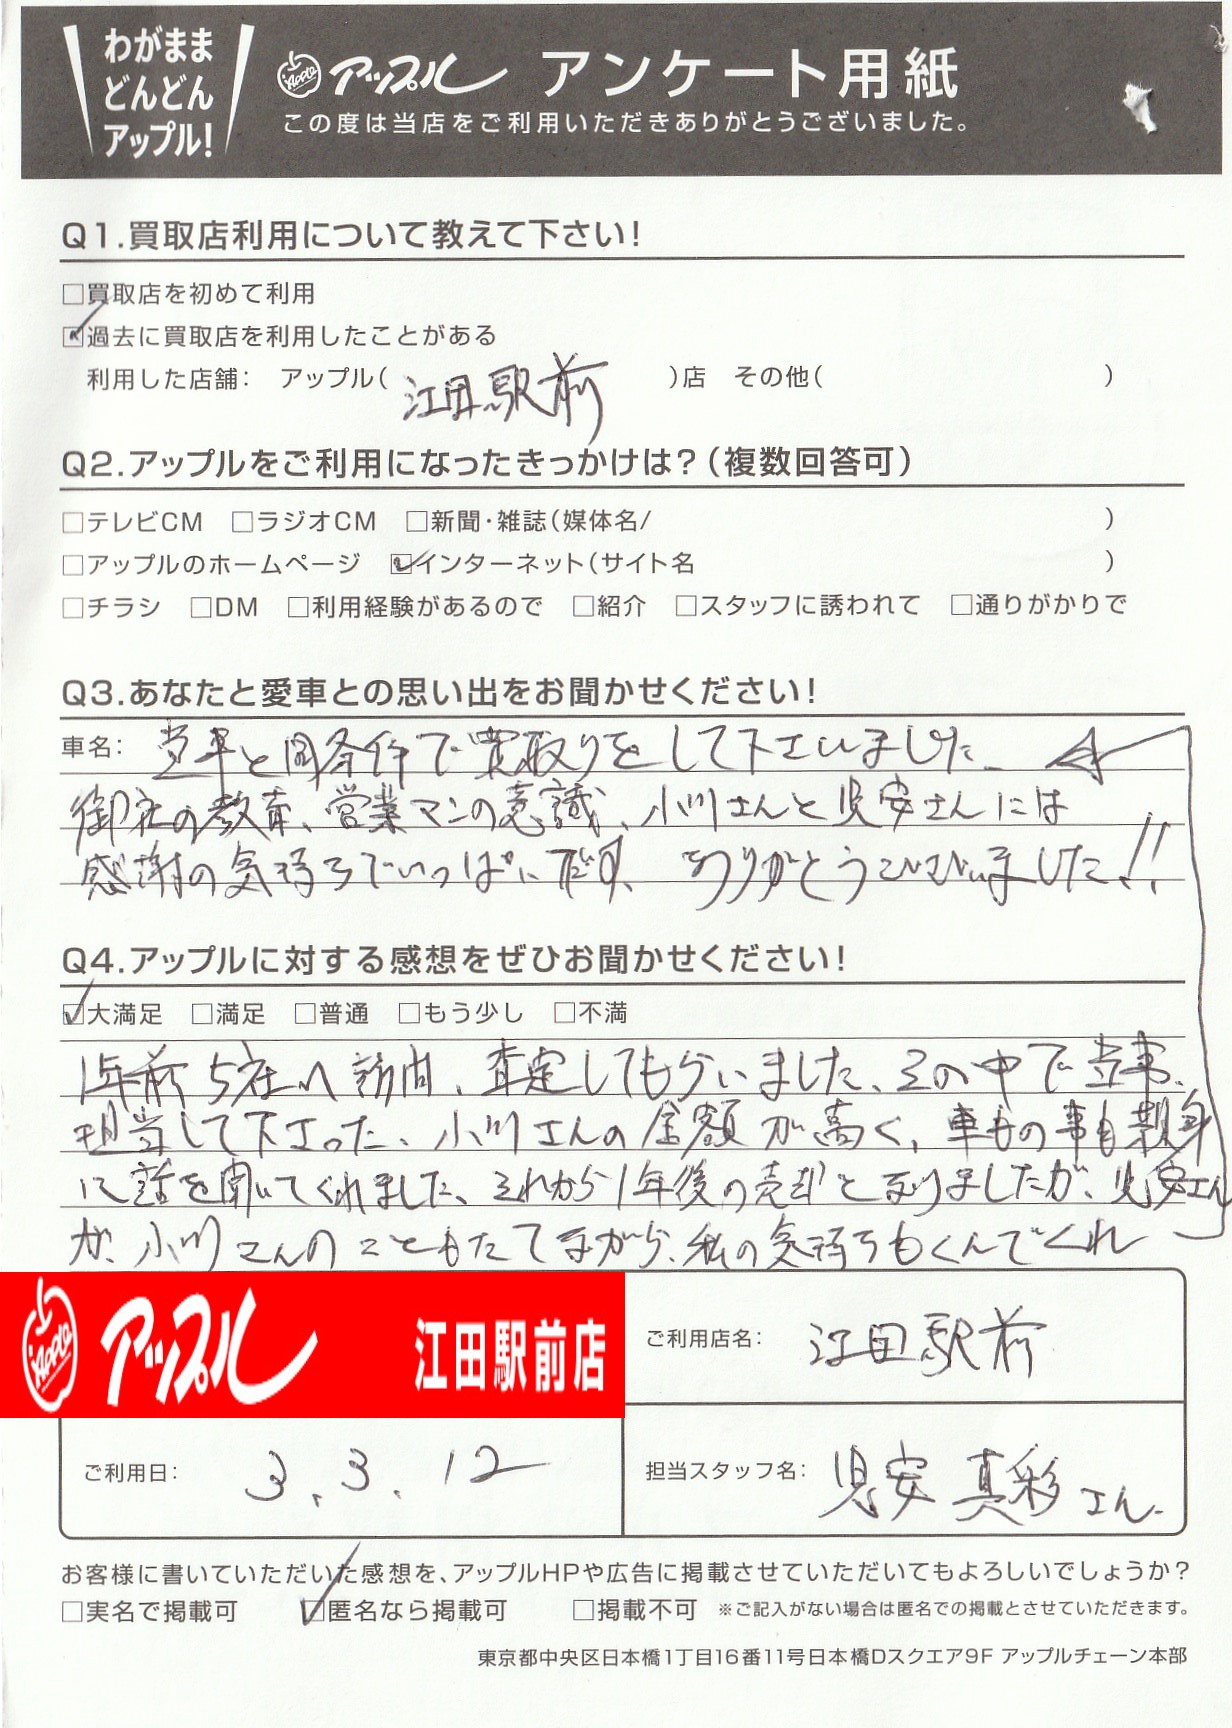 わがまま
どんどん
アップル!
Apple アップル アンケート用紙
この度は当店をご利用いただきありがとうございました。
Q1.買取店利用について教えて下さい!
□買取店を初めて利用
☑過去に買取店を利用したことがある
利用した店舗: アップル(江田駅前)店 その他( )
Q2.アップルをご利用になったきっかけは?(複数回答可)
□テレビCM □ラジオCM □新聞・雑誌(媒体名/ )
□アップルのホームページ ☑インターネット(サイト名 )
□チラシ □DM □利用経験があるので □紹介 □スタッフに誘われて □通りがかりで
Q3.あなたと愛車との思い出をお聞かせください!
車名: と同条件で買取りをして下さいました
御社の教育、営業マンの意識、小川さんと児安さんには
感謝の気持ちでいっぱいです、ありがとうございました!!
Q4.アップルに対する感想をぜひお聞かせください!
☑大満足 □満足 □普通 □もう少し □不満
1年前5社へ訪問、査定してもらいました、その中で当時、
担当して下さった、小川さんの金額が高く、車の事も親身
に話を聞いてくれました、それから1年後の売却と成りましたが、児安さん
が、小川さんのこともたてながら、私の気持ちもくんでくれ
Apple アップル 江田駅前店
ご利用店名: 江田駅前
ご利用日: 3.3.12
担当スタッフ名: 児安 真彩さん
お客様に書いていただいた感想を、アップルHPや広告に掲載させていただいてもよろしいでしょうか?
□実名で掲載可 ☑匿名なら掲載可 □掲載不可 ※ご記入がない場合は匿名での掲載とさせていただきます。
東京都中央区日本橋1丁目16番11号日本橋Dスクエア9F アップルチェーン本部